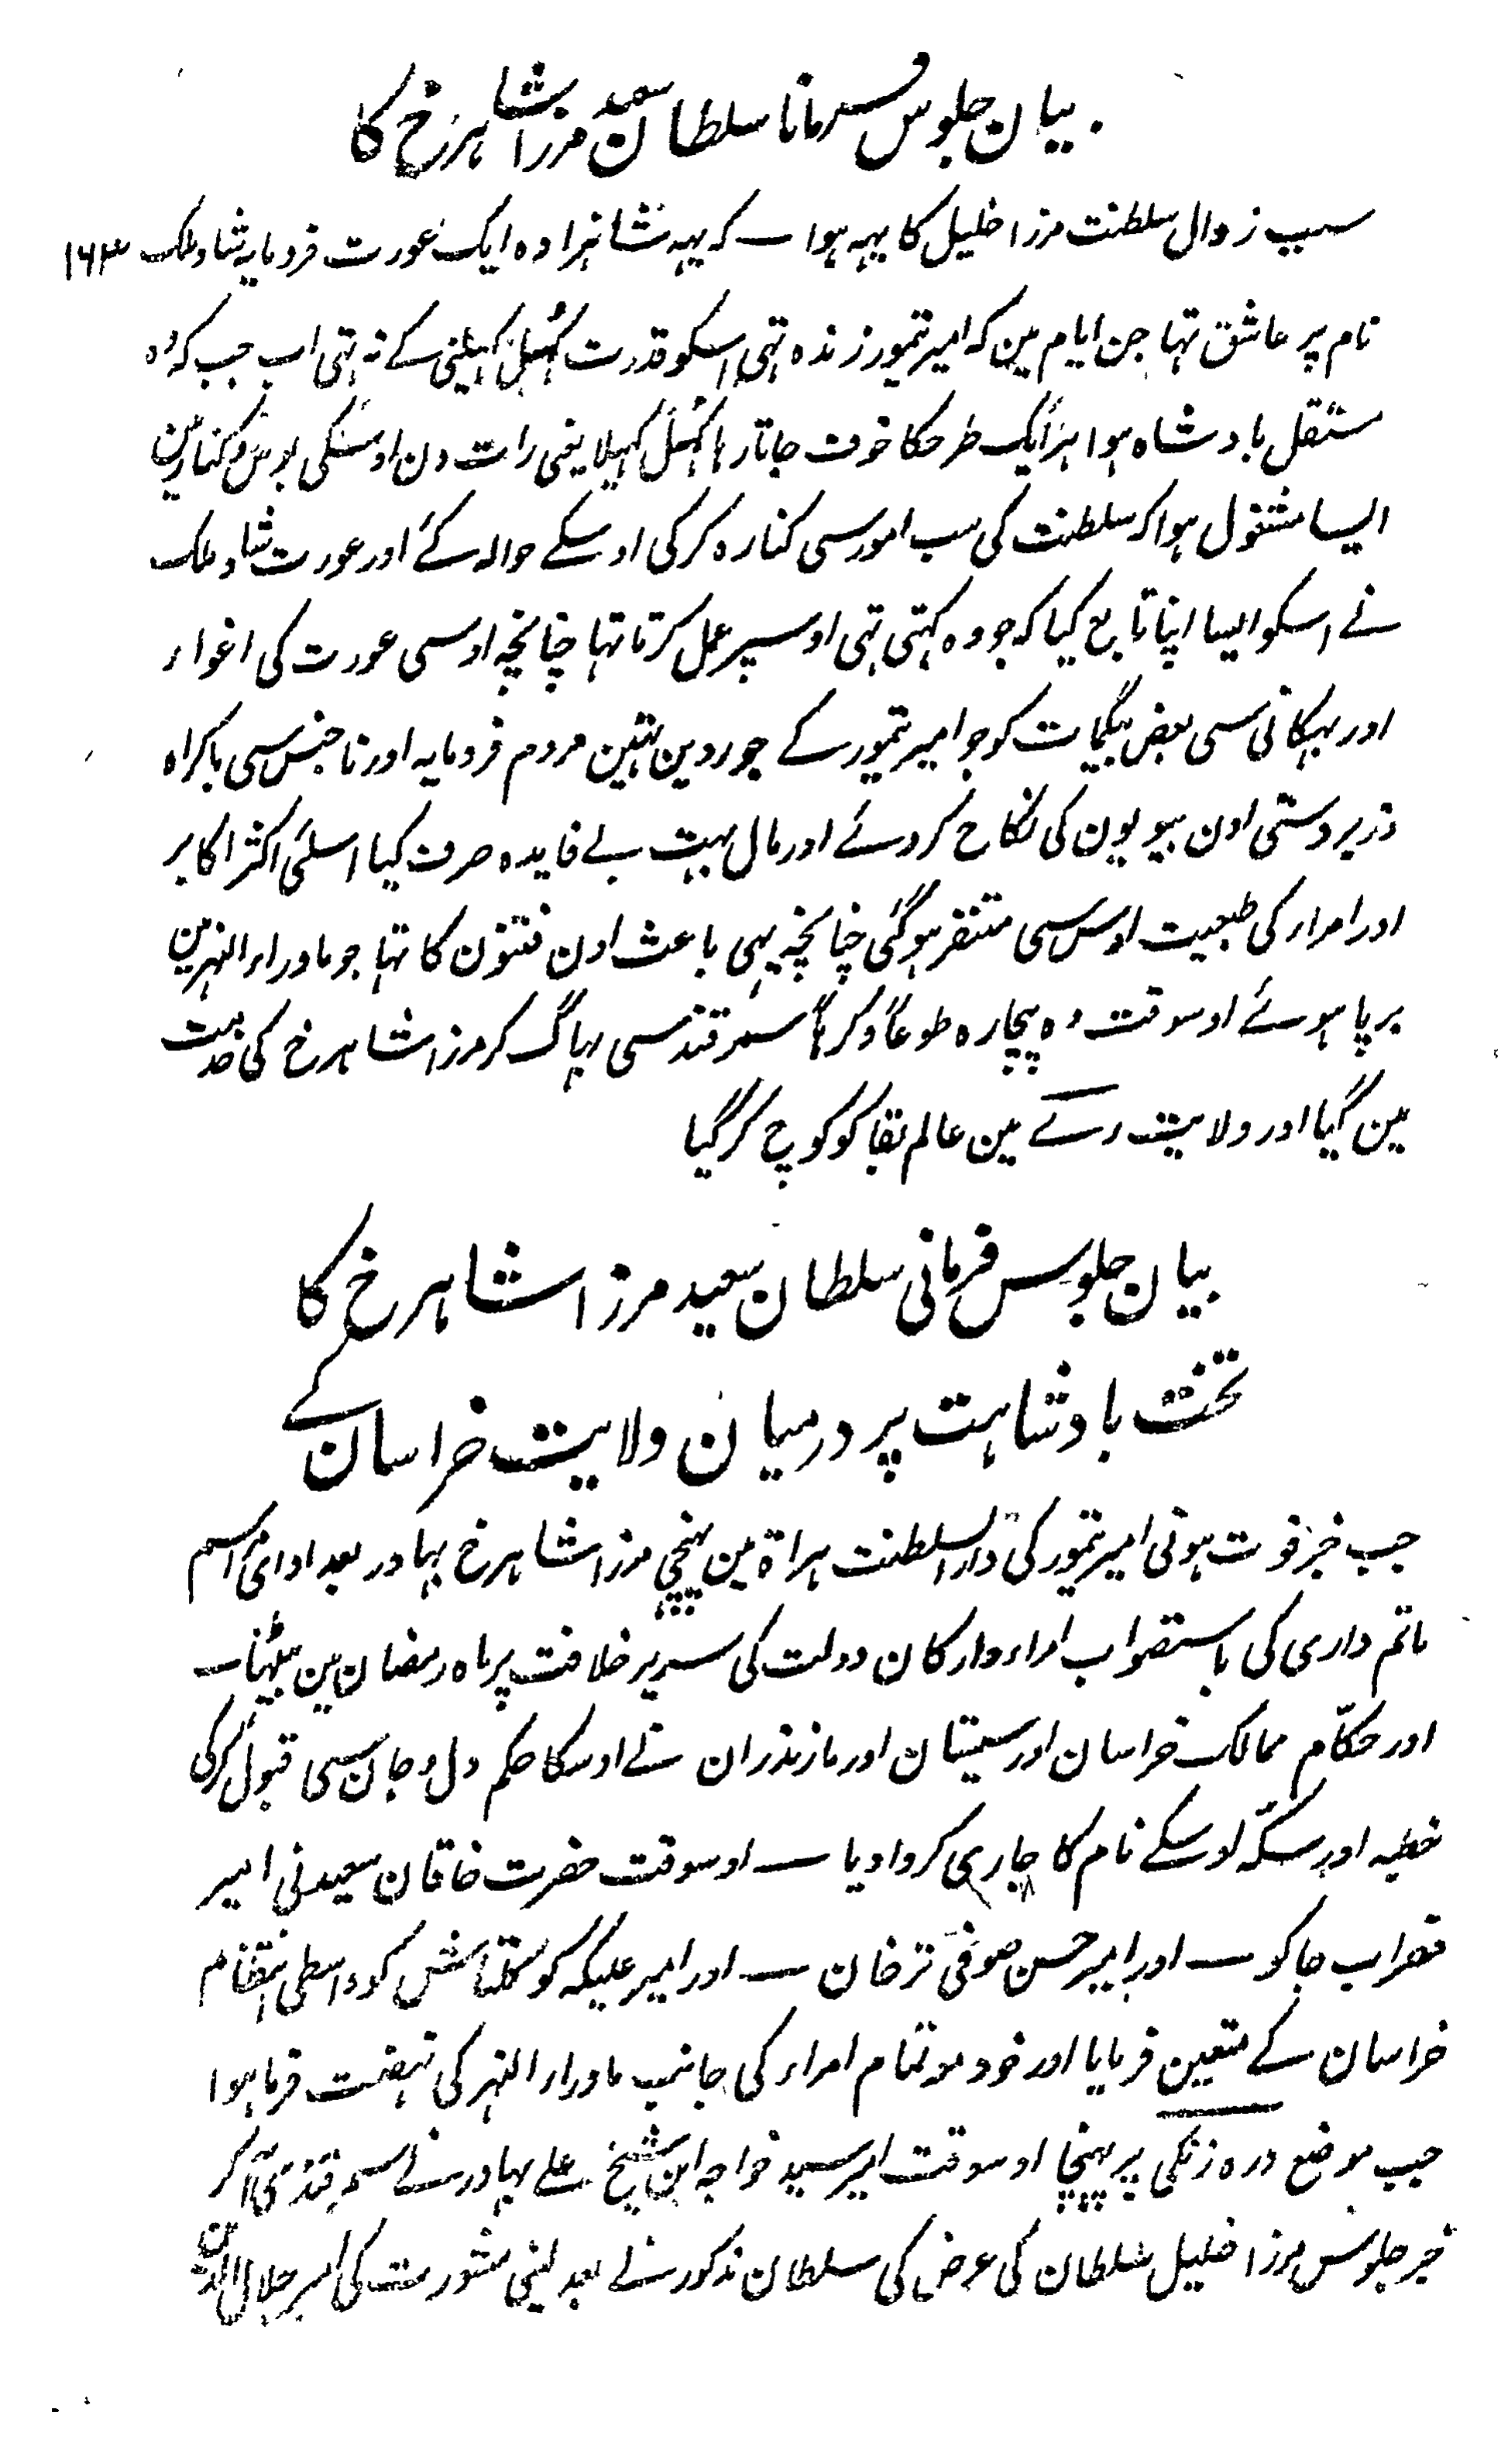 بیان جلوس فرمانا سلطان سعید مرزا شاہرخ کا
سبب زوال سلطنت مرزا خلیل کا یہہ ہوا ـــ کہ یہہ شاہزادہ ایک عورت فرومایہ شاد ملک ۱۶۳
نام پر عاشق تہا جن ایام مین کہ امیر تیمور زندہ تہی اسکو قدرت کہل کہیلنی کے نہ تہی اب جب کہ وہ
مستقل بادشاہ ہوا ہر ایک طرحکا خوف جاتا رہا کہل کہیلا یعنی رات دن اوسکی بوس و کنار مین
ایسا مشغول ہوا کہ سلطنت کی سب امور سی کنارہ کر کی اوسکے حوالہ کئے اور عورت شاد ملک
نے اسکو ایسا اپنا تابع کیا کہ جو وہ کہتی تہی اوسپر عمل کرتا تہا چنانچہ اوسی عورت کی اغواء
اور بہکانی سی بعض بیگمات کو جو امیر تیمور کے جوروین تہین مردم فرومایہ اور ناجنس سی باکراہ
وزبردستی اون بیویون کی نکاح کردئے اور مال بہت بے فایدہ صرف کیا اسلئی اکثر اکابر
اور امراء کی طبیعت اوس سی متنفر ہوگئی چنانچہ یہی باعث اون فتنون کا تہا جو ماوراء النہر مین
برپا ہوئے اوسوقت وہ بیچارہ طوعاً و کرہاً سمرقند سی بہاگ کر مرزا شاہرخ کی خدمت
مین گیا اور ولایت رے مین عالم بقا کو کوچ کر گیا
بیان جلوس فرمانی سلطان سعید مرزا شاہرخ کا
تخت بادشاہت پر درمیان ولایت خراسان کے
جب خبر فوت ہونی امیر تیمور کی دار السلطنت ہراة مین پہنچی مرزا شاہرخ بہادر بعد ادای مراسم
ماتم داری کی باستصواب امراء و ارکان دولت کی سریر خلافت پر ماہ رمضان مین بیٹہا ـــ
اور حکّام ممالک خراسان اور سیستان اور مازندران نے اوسکا حکم دل و جان سی قبول کر کی
خطبہ اور سکّہ اوسکے نام کا جاری کروا دیا ـــ اوسوقت حضرت خاقان سعید نی امیر
مضراب جاکو ـــ اور امیر حسن صوفی ترخان ـــ اور امیر علیکہ کوکلتاش کو واسطی انتظام
خراسان کے متعین فرمایا اور خود مو تمام امراء کی جانب ماوراء النہر کی نہضت فرما ہوا
جب موضع درہ زنگی پر پہنچا اوسوقت امیر سید خواجہ ابن شیخ علے بہادر نے سمرقند سی آ کر
خبر جلوس مرزا خلیل سلطان کی عرض کی سلطان مذکور نے بعد لینی مشورت کی امیر جلال الدین